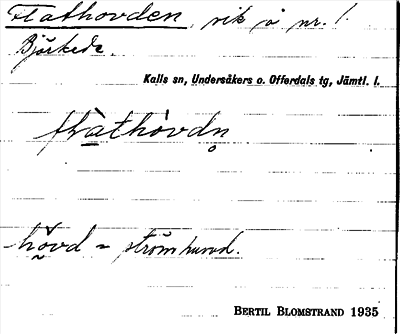 Flathovden, vik å nr. 1.
Björkede.
Kalls sn, Undersåkers o. Offerdals tg, Jämtl. l.
flàthòvdn̥
hŏvd = strömhuvud.
BERTIL BLOMSTRAND 1935